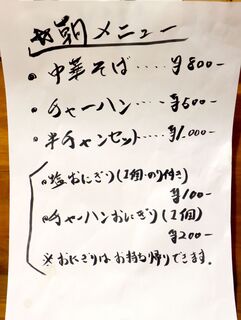 お朝メニュー
・中華そば････¥800-
・チャーハン･･･¥500-
・半チャンセット････¥1.000-
・塩おにぎり(1個・のり付き)
¥100-
・チャーハンおにぎり(1個)
¥200-
※おにぎりはお持ち帰りできます。